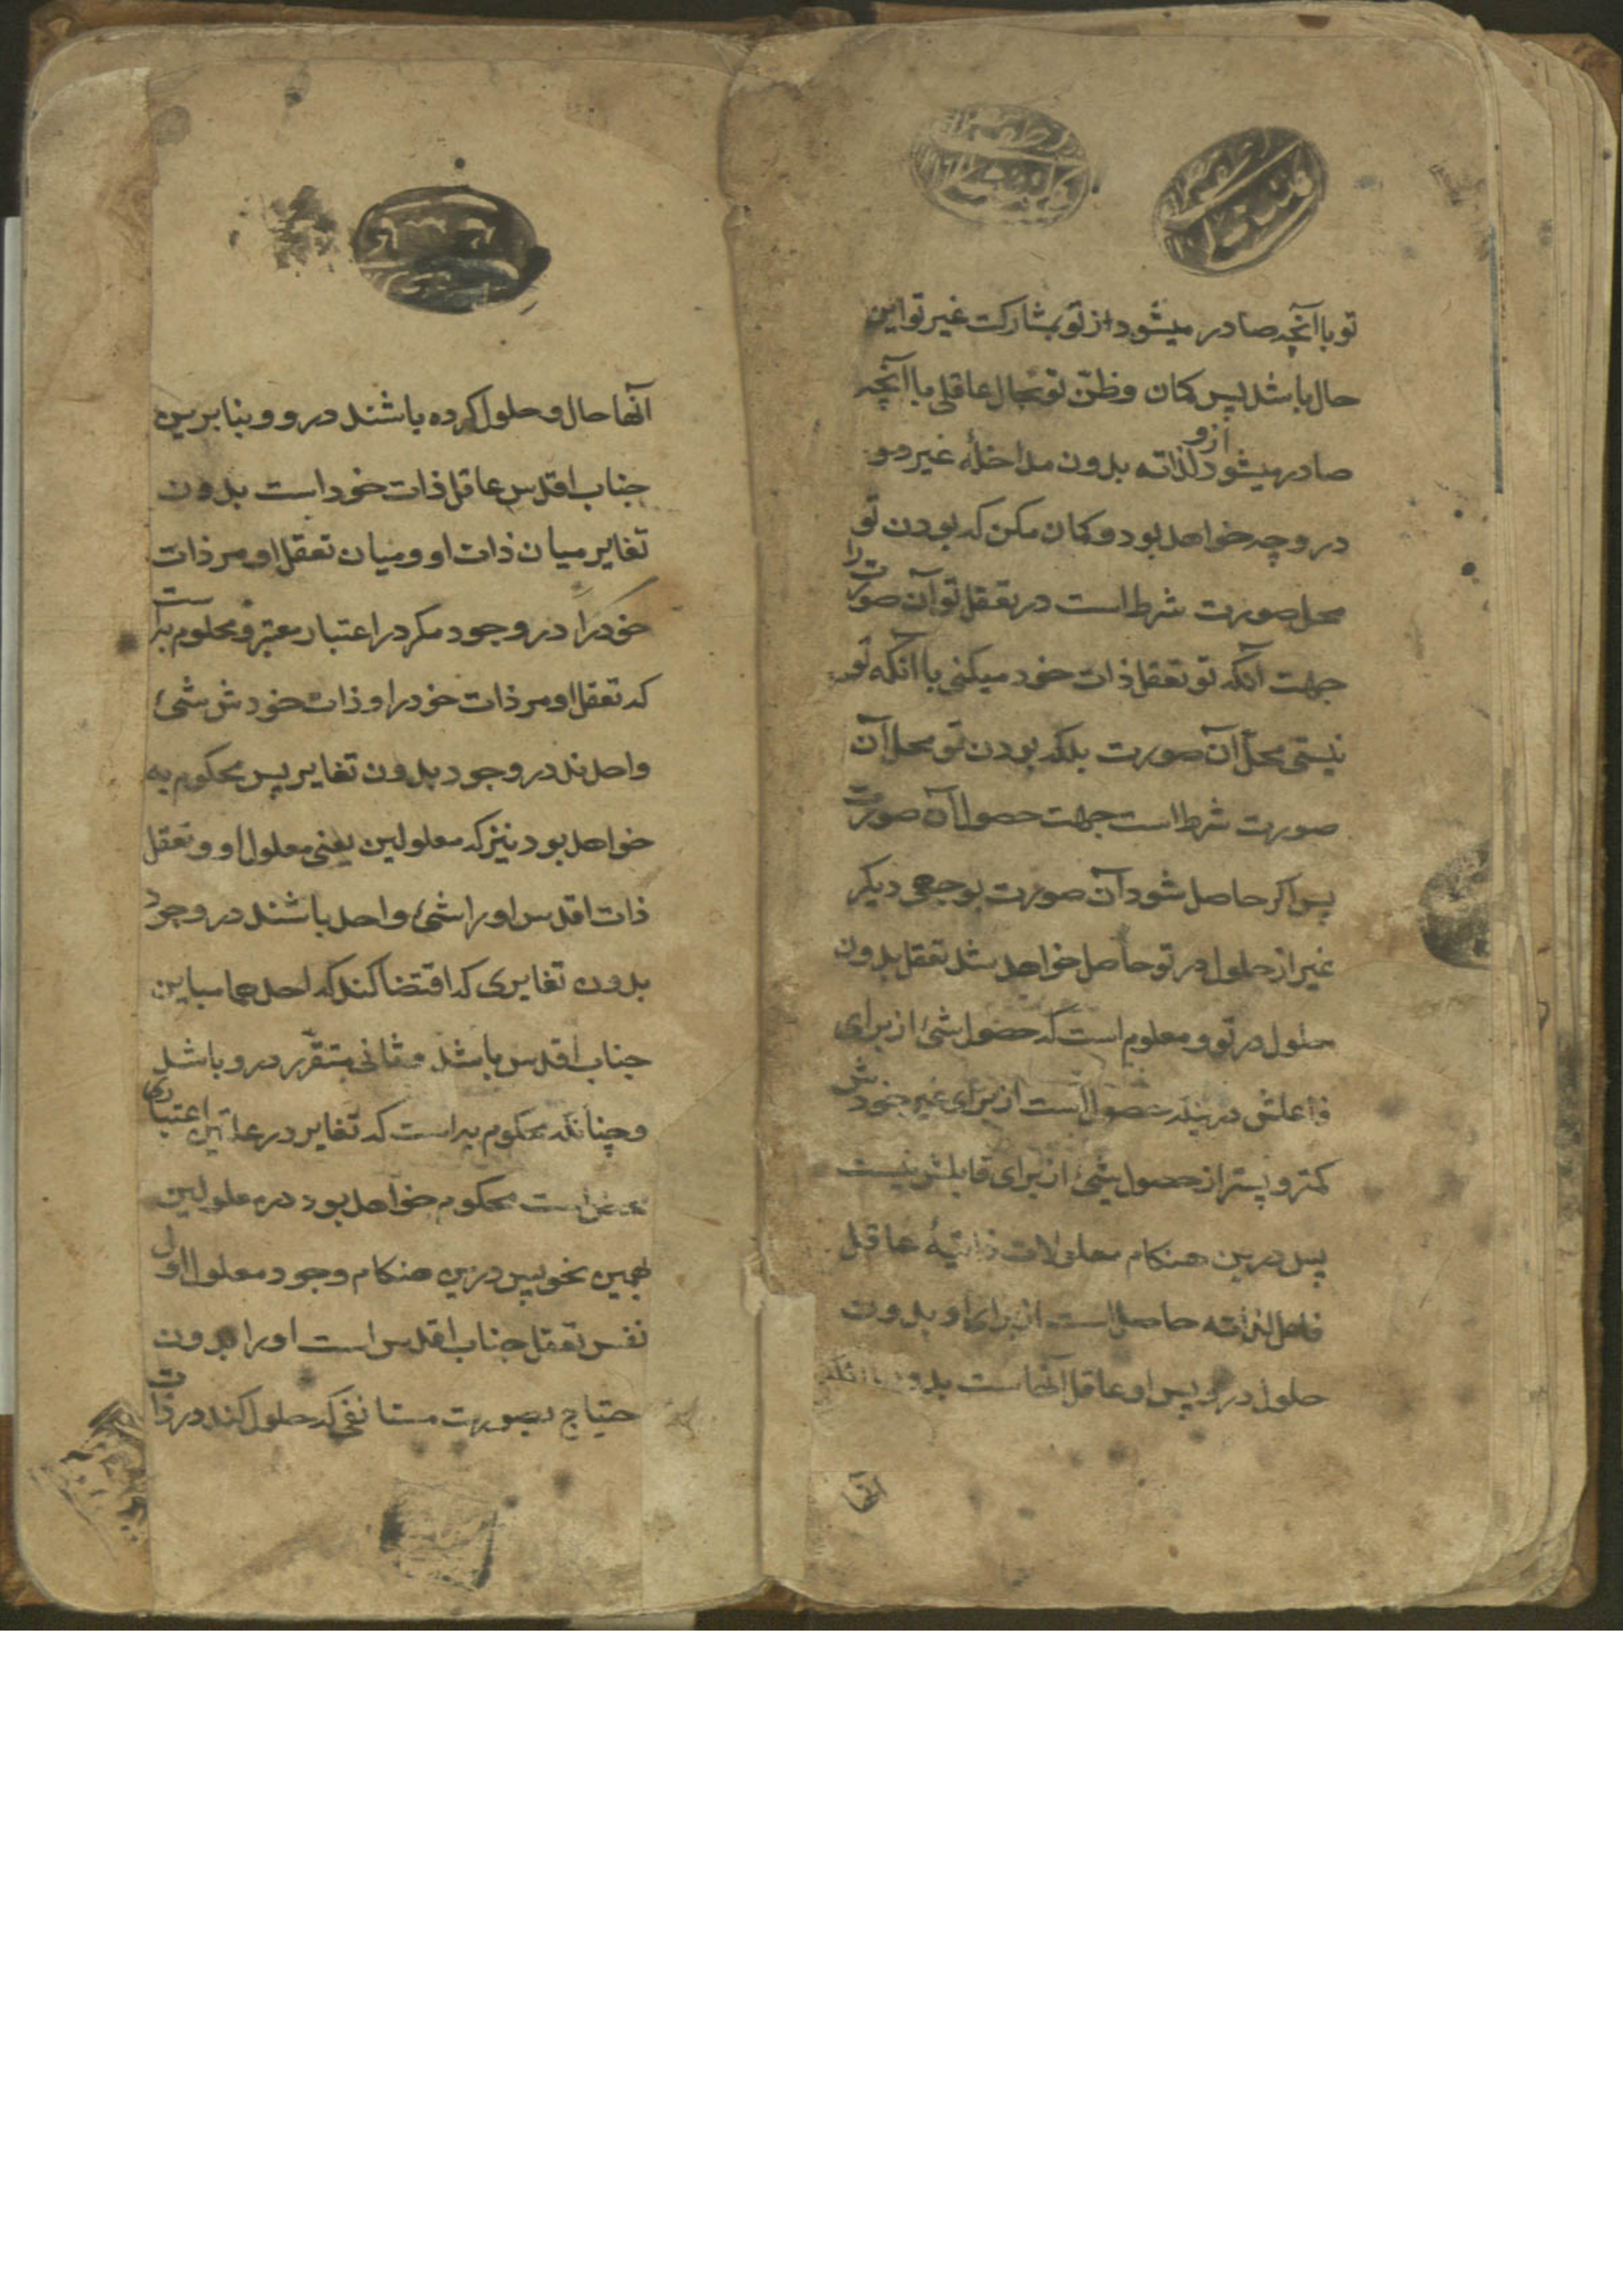 تو با آنچه صادر میشود از تو بمشارکت غیر تو این
حال باشد پس کمان و ظنّ تو بحال عاقلی با آنچه
صادر میشود ازو لذاته بدون مداخلهٔ غیر دو
درو چه خواهد بود و کمان مکن که بودن تو
محل صورت شرط است در تعقل تو آن صورت را
جهت آنکه تو تعقل ذات خود میکنی با آنکه تو
نیستی محلّ آن صورت بلکه بودن تو محل آن
صورت شرط است جهت حصول آن صورت
پس اکر حاصل شود آن صورت بوجهی دیکر
غیر از حلول در تو حاصل خواهد شد تعقل بدون
حلول در تو و معلوم است که حصول شیٔ از برای
فاعلش در بند حصول است از برای غیر خودش
کمتر و پستر از حصول شیٔ از برای قابلش نیست
پس درین هنکام معلولات ذاتیهٔ عاقل
فاعل لذاته حاصل است از برای او بدون
حلول درو پس او عاقل آنهاست بدون آنکه
آنها
آنها حال و حلول کرده باشند درو و بنا برین
جناب اقدس عاقل ذات خود است بدون
تغایر میان ذات او و میان تعقل او مر ذات
خود را در وجود مکر در اعتبار معتبر و محکوم به است
که تعقل او مر ذات خود را و ذات خودش شیٔ
واحدند در وجود بدون تغایر پس محکوم به
خواهد بود نیز که معلولین یعنی معلول او و تعقل
ذات اقدس او را شیٔ واحد باشند در وجود
بدون تغایری که اقتضا کند که احدهما مباین
جناب اقدس باشد و ثانی متقرّر درو باشد
و چنانکه محکوم به است که تغایر در علتین اعتباری
محض است محکوم خواهد بود در معلولین
بهمین نحو پس درین هنکام وجود معلول اول
نفس تعقل جناب اقدس است او را بدون
حتیاج بصورت مستانفی که حلول کند در ذات